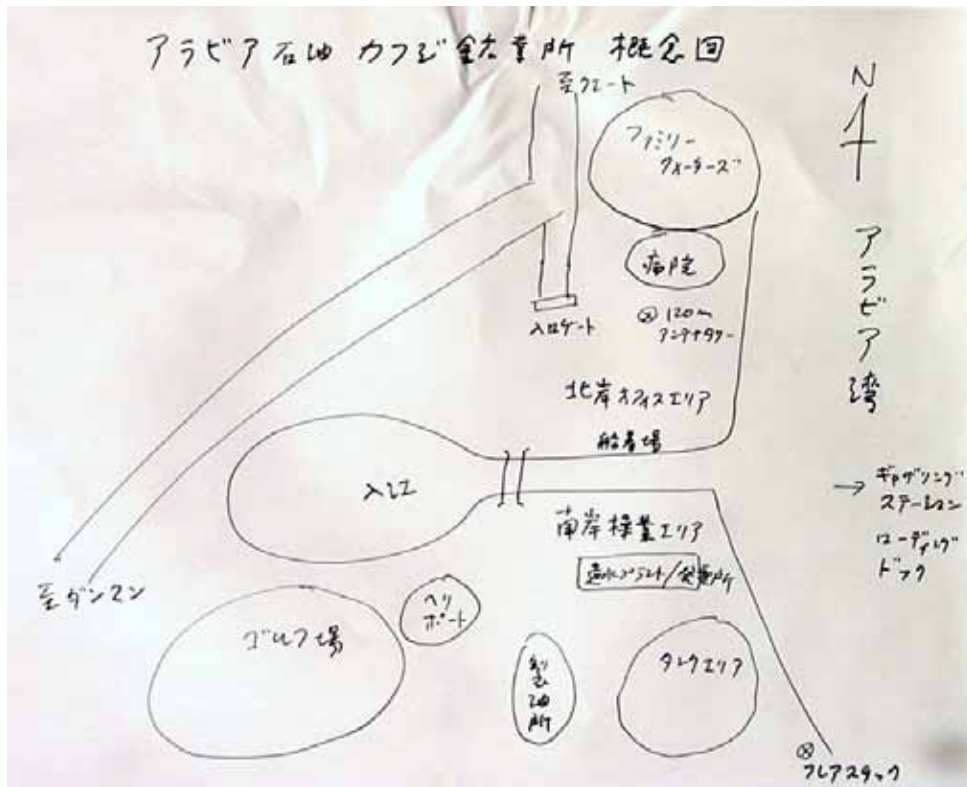 アラビア石油 カフジ鉱業所 概念図
至クエート
N
ファミリー
クォーターズ
病院
120m
アンテナタワー
入口ゲート
アラビア湾
北岸オフィスエリア
船着場
入江
→ ギャザリング
ステーション
ローディング
ドック
南岸操業エリア
造水プラント/発電所
至ダンマン
ヘリ
ポート
ゴルフ場
製油所
タンクエリア
フレアスタック